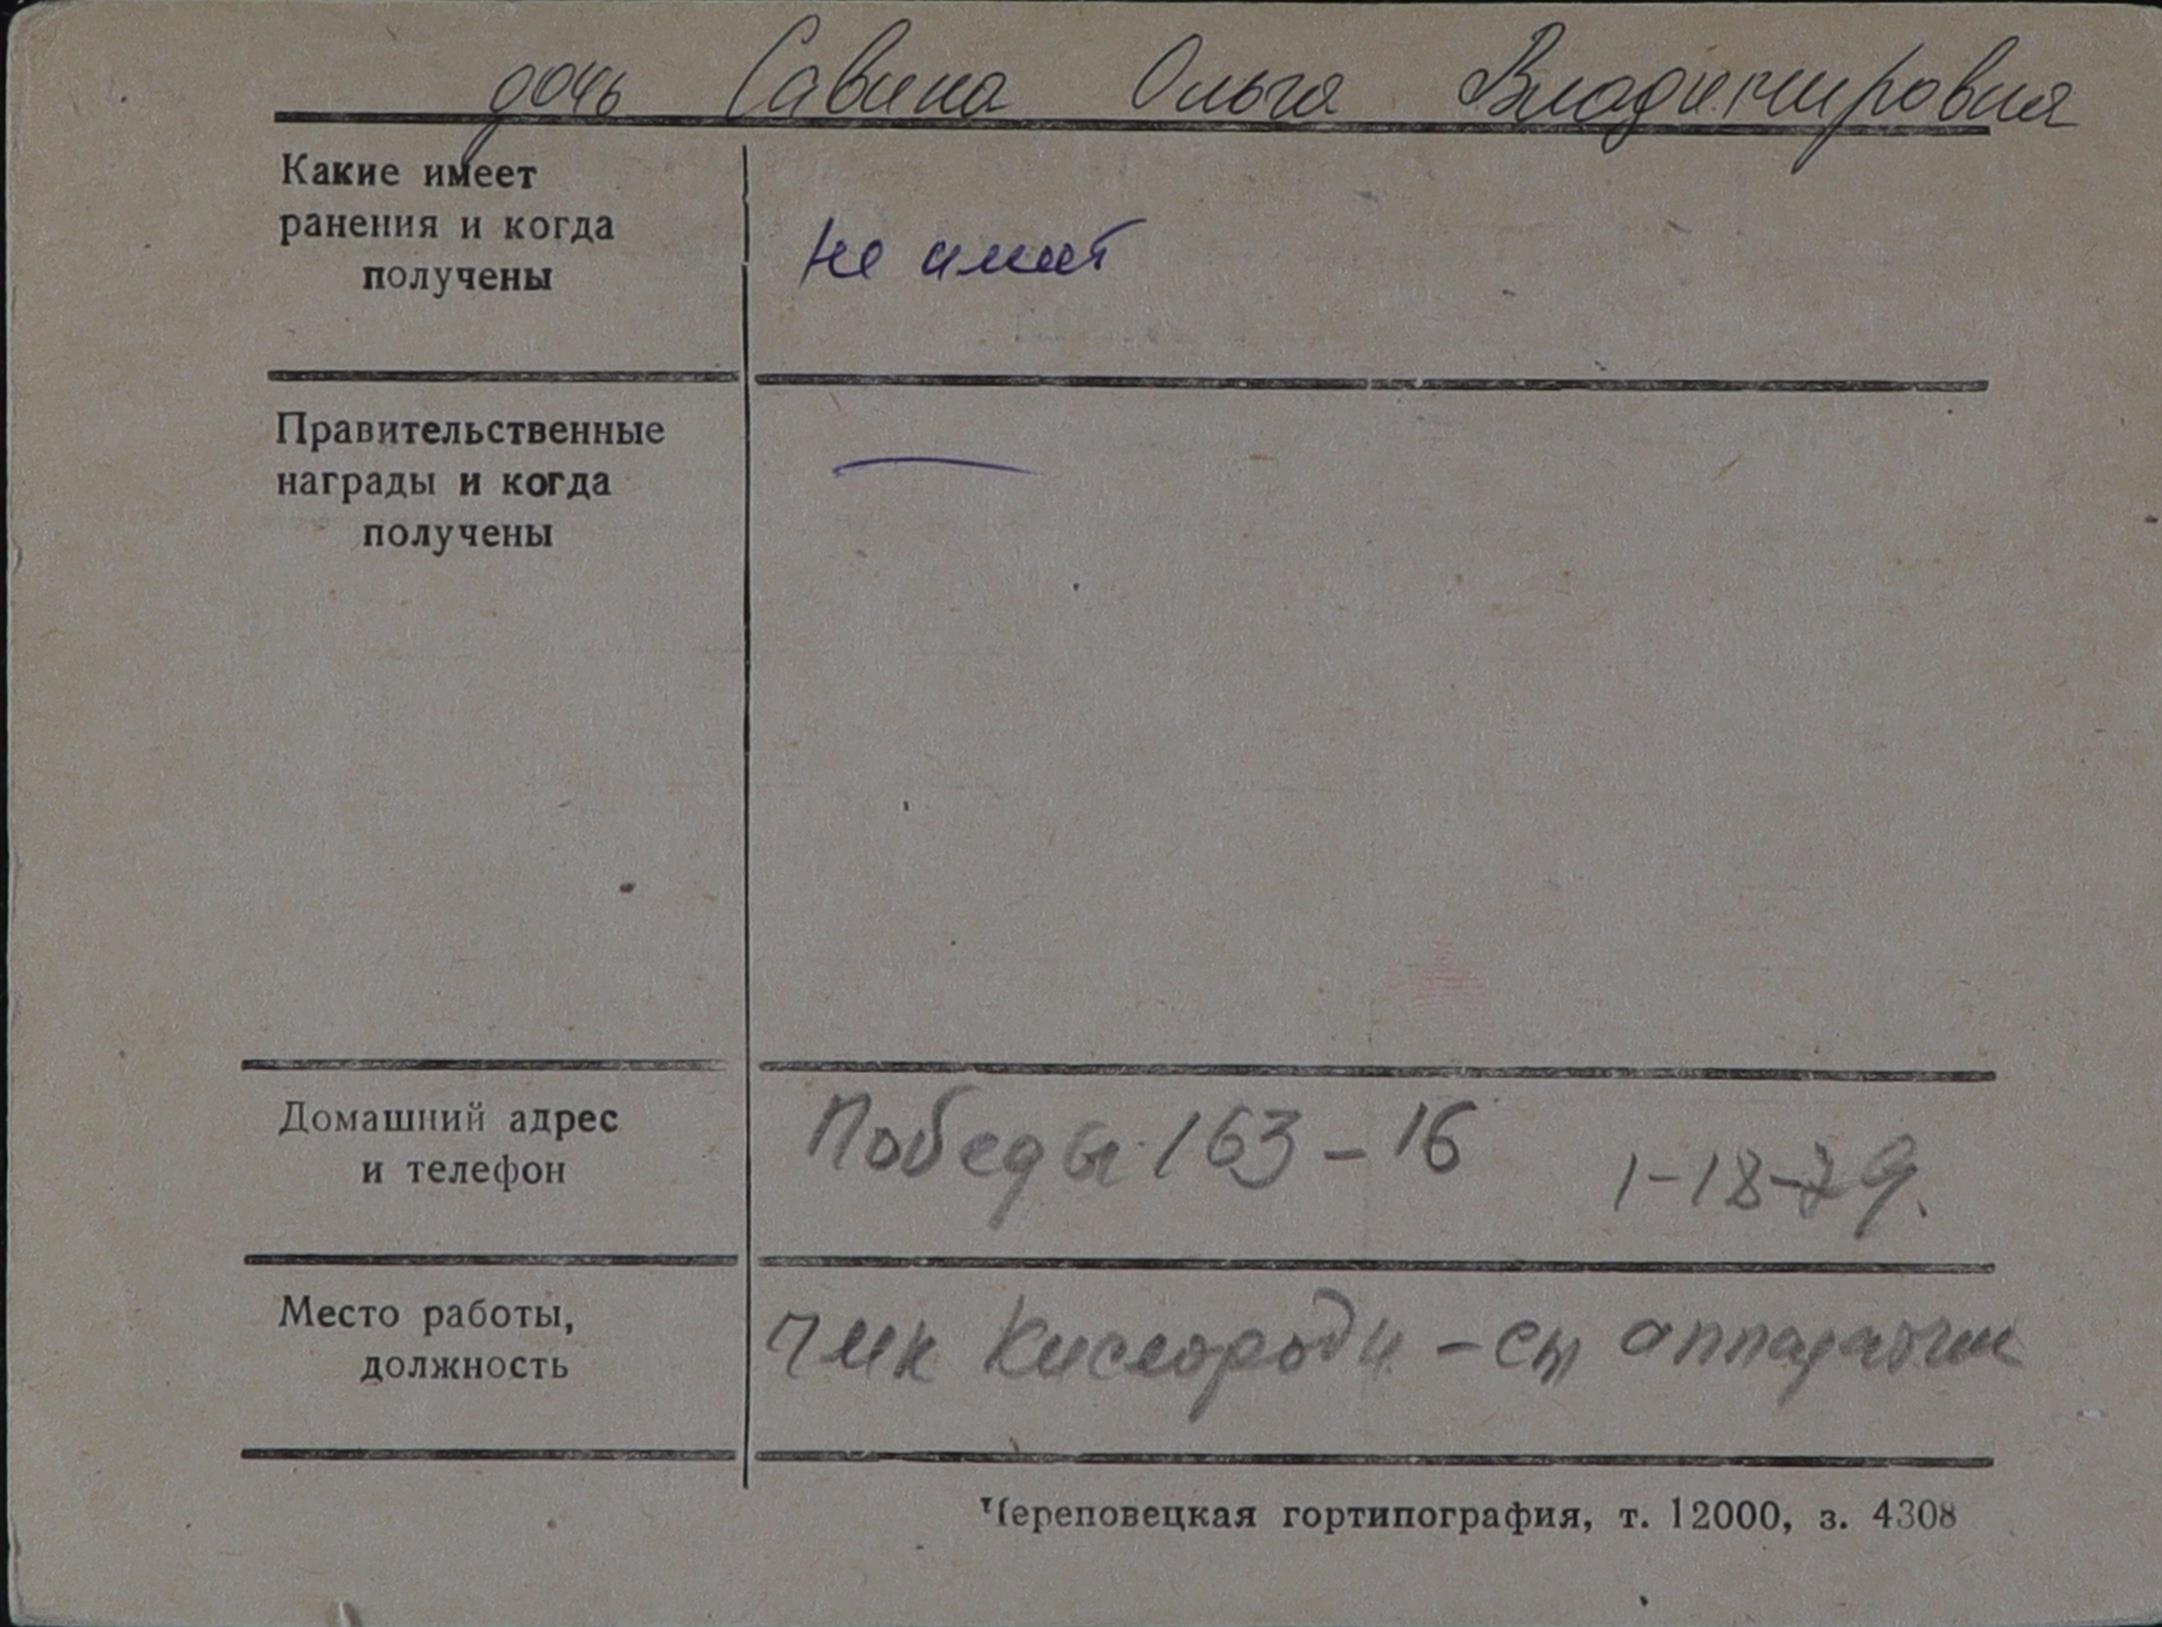 дочь Савина Ольга Владимировна
Какие имеет
ранения и когда
получены
не имеет
Правительственные
награды и когда
получены
—
Домашний адрес
и телефон
Победы 163-16 1-18-79.
Место работы,
должность
ЧМК Кислородн - ст аппаратчик
Череповецкая гортипография, т. 12000, з. 4308